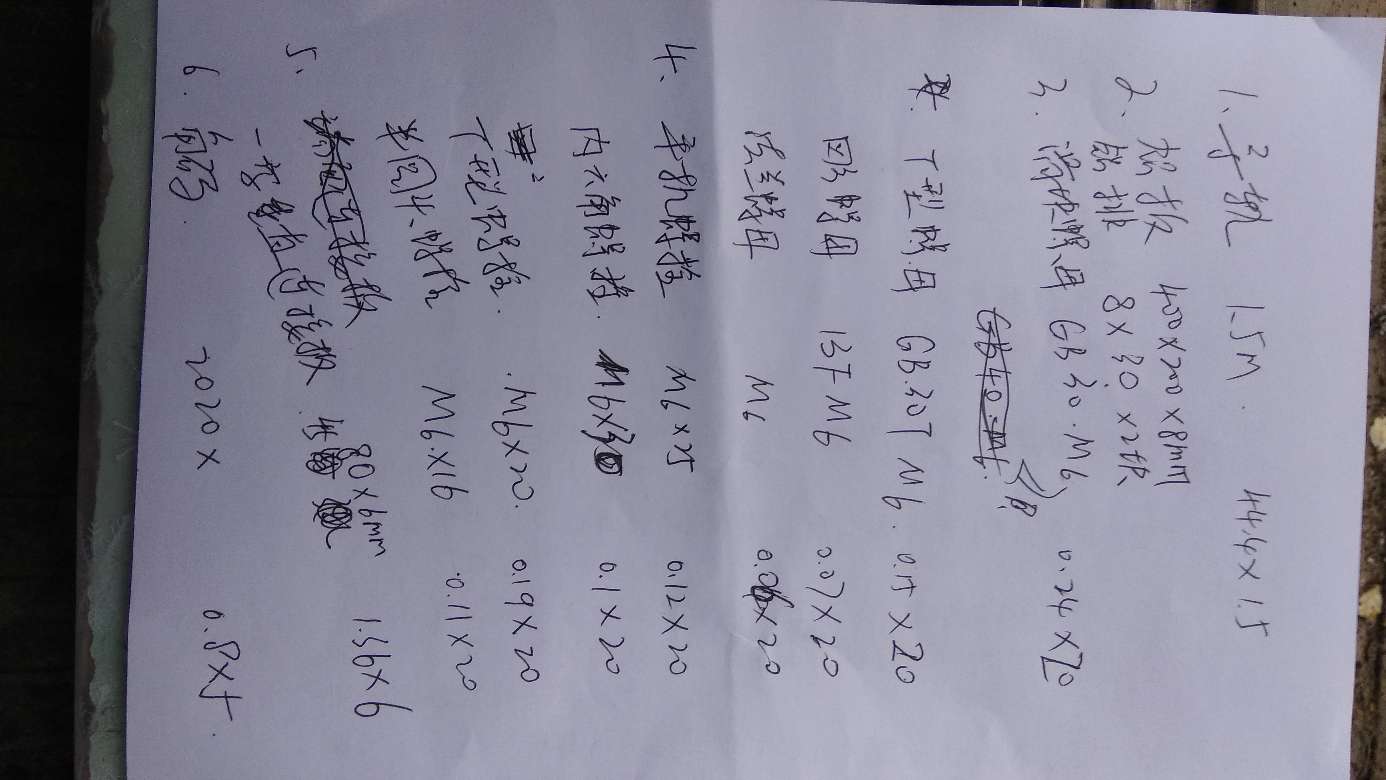 1. 导轨 1.5M. 44.4×1.5
2. 铝板 400×200×8mm
铝排 8×30×2块
3. 滑块螺母 GB30.M6 0.24×20
T型螺母 GB.30T M6. 0.15×20
四方螺母 13F M6 0.07×20
法兰螺母 M6 ×20
4. 手机螺栓 M6×25 0.12×20
内六角螺栓. M6×30 0.1×20
T型螺栓. M6×20. 0.19×20
半圆头螺栓 M6×16 0.11×20
5. 80×6mm
一字型连接板 1.56×6
6. 角码. 2020× 0.8×5